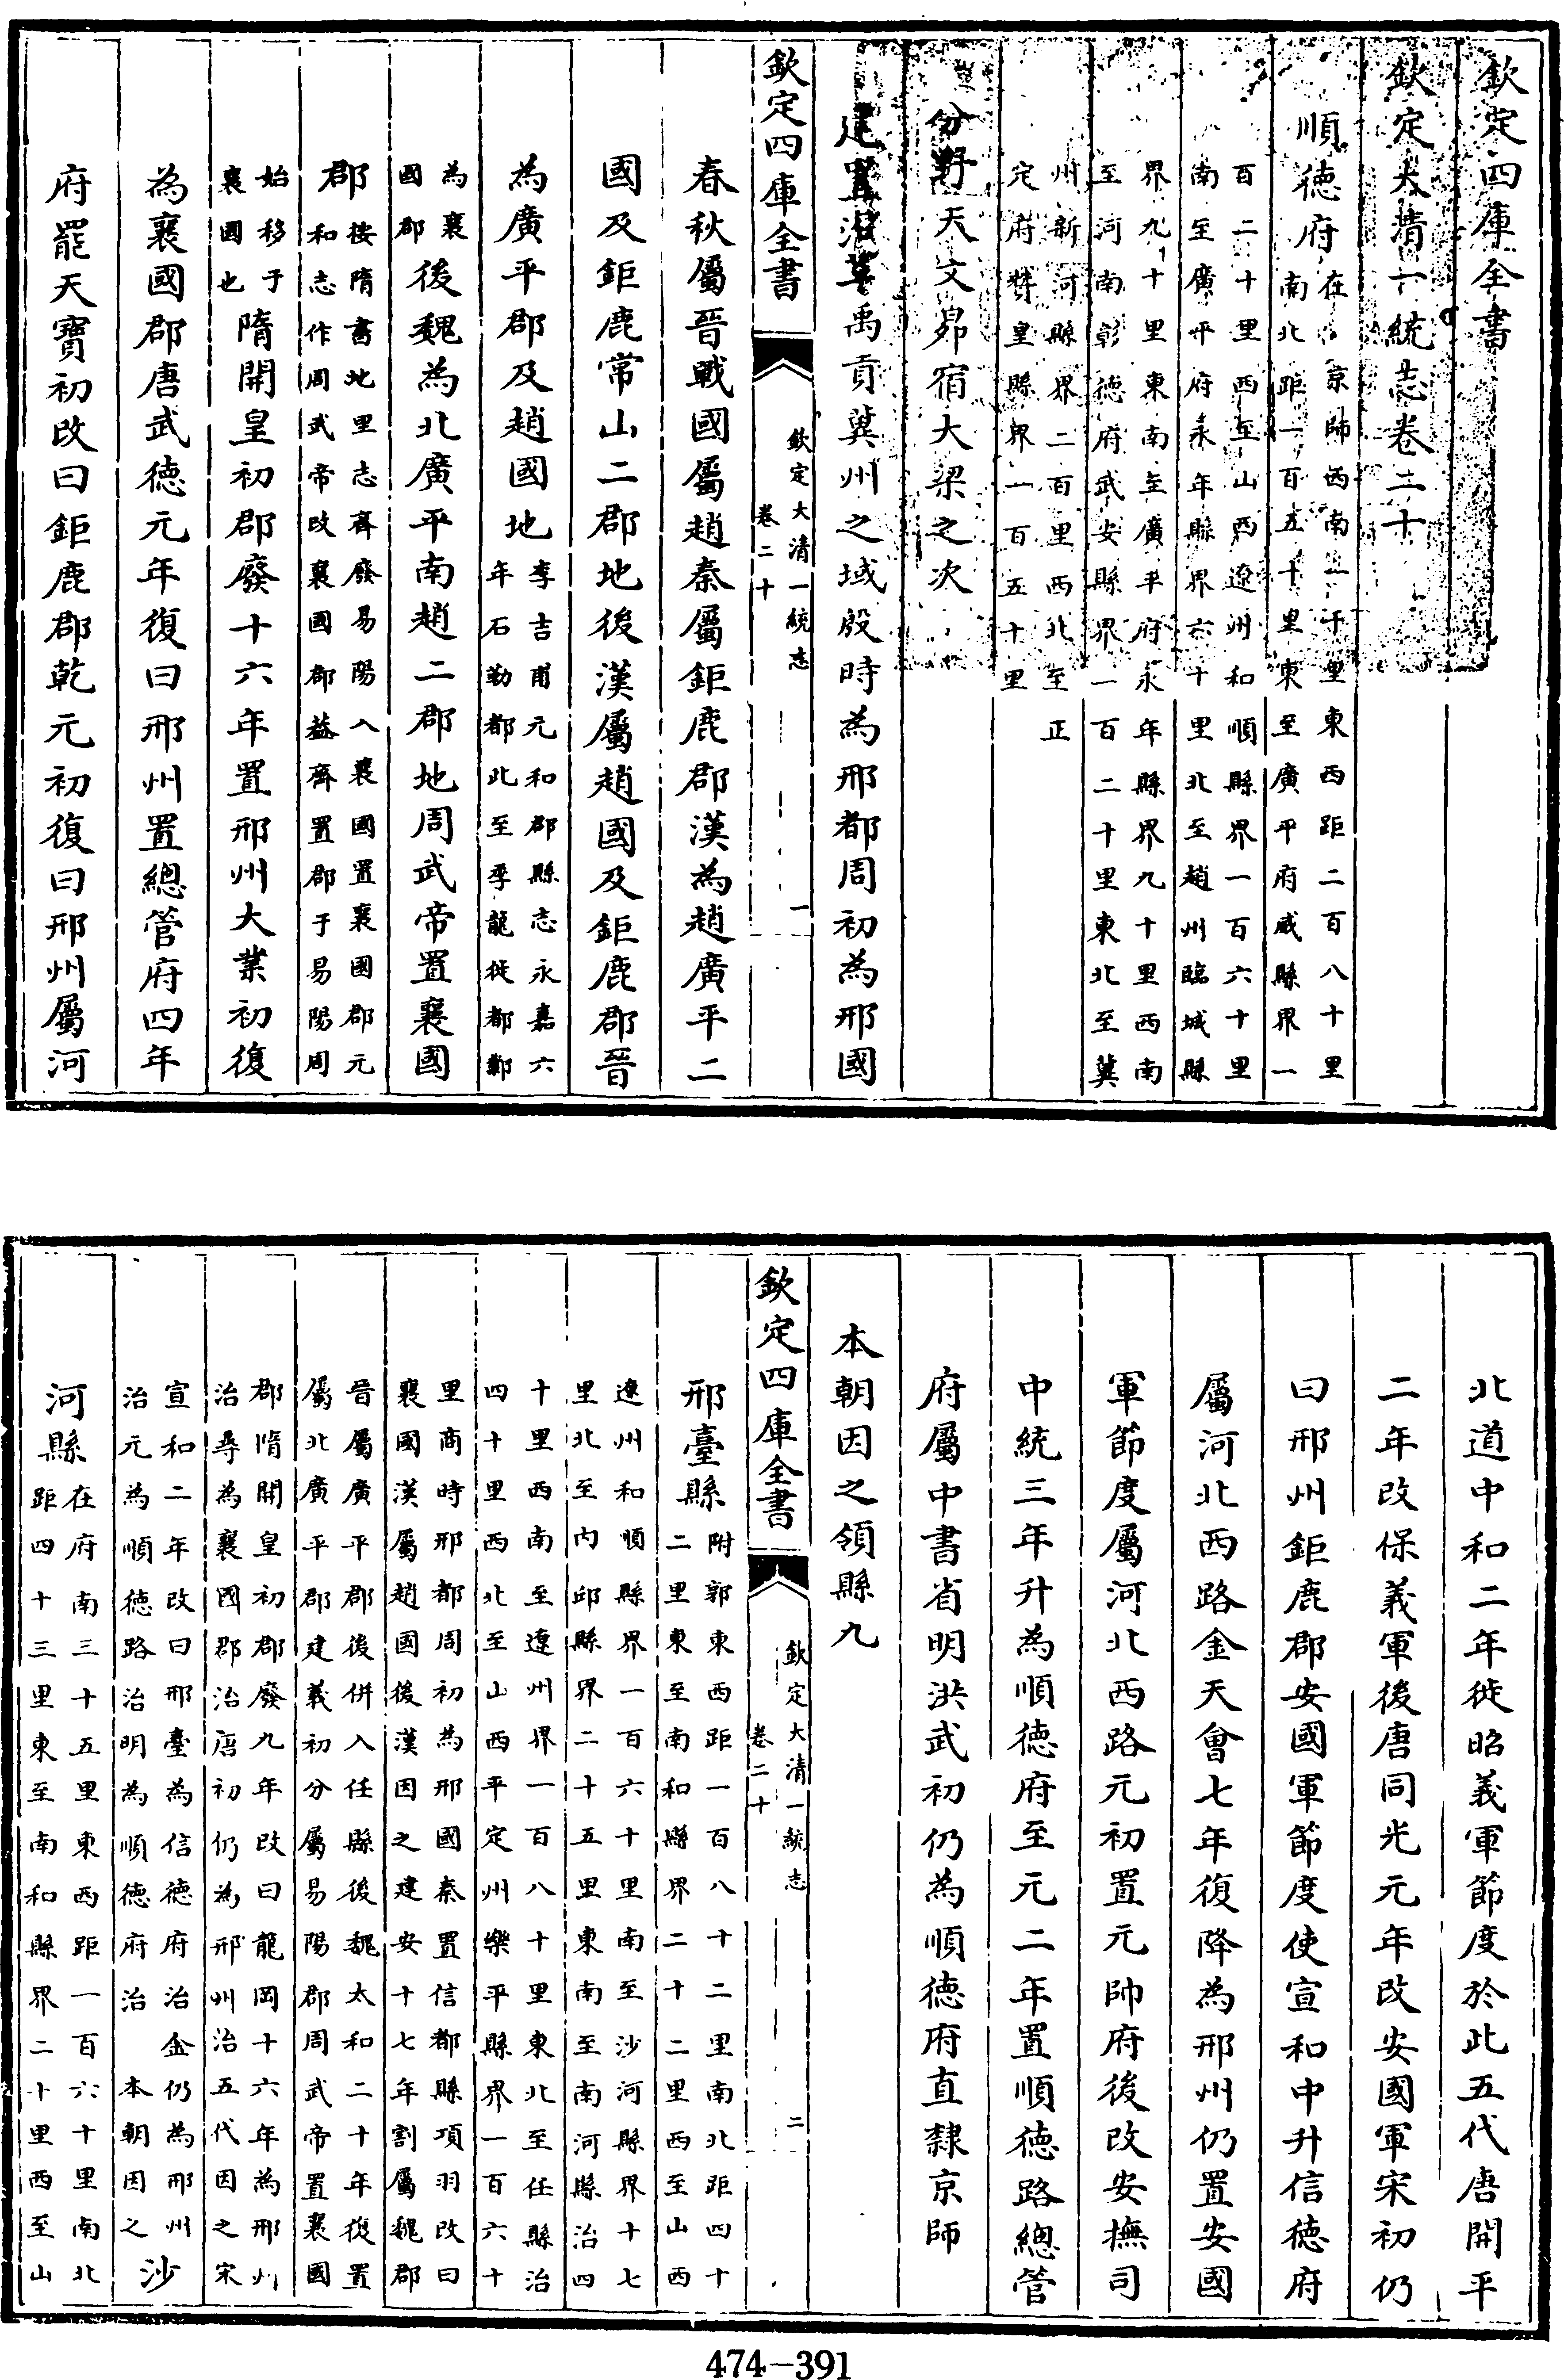 欽定四庫全書
欽定大清一統志卷二十
順德府在京師西南一千里東西距二百八十里
南北距一百五十里東至廣平府威縣界一
百二十里西至山西遼州和順縣界一百六十里
南至廣平府永年縣界六十里北至趙州臨城縣
界九十里東南至廣平府永年縣界九十里西南
至河南彰德府武安縣界一百二十里東北至冀
州新河縣界二百里西北至正
定府贊皇縣界一百五十里
分野天文昴宿大梁之次
建置沿革禹貢冀州之域殷時為邢都周初為邢國
欽定四庫全書
欽定大清一統志
卷二十
一
春秋屬晉戰國屬趙秦屬鉅鹿郡漢為趙廣平二
國及鉅鹿常山二郡地後漢屬趙國及鉅鹿郡晉
為廣平郡及趙國地李吉甫元和郡縣志永嘉六
年石勒都此至季龍徙都鄴
為襄
國郡後魏為北廣平南趙二郡地周武帝置襄國
郡按隋書地里志齊廢易陽入襄國置襄國郡元
和志作周武帝改襄國郡益齊置郡于易陽周
始移于
襄國也隋開皇初郡廢十六年置邢州大業初復
為襄國郡唐武德元年復曰邢州置總管府四年
府罷天寶初改曰鉅鹿郡乾元初復曰邢州屬河
北道中和二年徙昭義軍節度於此五代唐開平
二年改保義軍後唐同光元年改安國軍宋初仍
曰邢州鉅鹿郡安國軍節度使宣和中升信德府
屬河北西路金天會七年復降為邢州仍置安國
軍節度屬河北西路元初置元帥府後改安撫司
中統三年升為順德府至元二年置順德路總管
府屬中書省明洪武初仍為順德府直隸京師
本朝因之領縣九
欽定四庫全書
欽定大清一統志
卷二十
二
邢臺縣附郭東西距一百八十二里南北距四十
二里東至南和縣界二十二里西至山西
遼州和順縣界一百六十里南至沙河縣界十七
里北至內邱縣界二十五里東南至南河縣治四
十里西南至遼州界一百八十里東北至任縣治
四十里西北至山西平定州樂平縣界一百六十
里商時邢都周初為邢國秦置信都縣項羽改曰
襄國漢屬趙國後漢因之建安十七年割屬魏郡
晉屬廣平郡後併入任縣後魏太和二十年復置
屬北廣平郡建義初分屬易陽郡周武帝置襄國
郡隋開皇初郡廢九年改曰龍岡十六年為邢州
治尋為襄國郡治唐初仍為邢州治五代因之宋
宣和二年改曰邢臺為信德府治金仍為邢州
治元為順德路治明為順德府治本朝因之沙
河縣在府南三十五里東西距一百六十里南北
距四十三里東至南和縣界二十里西至山
474-391